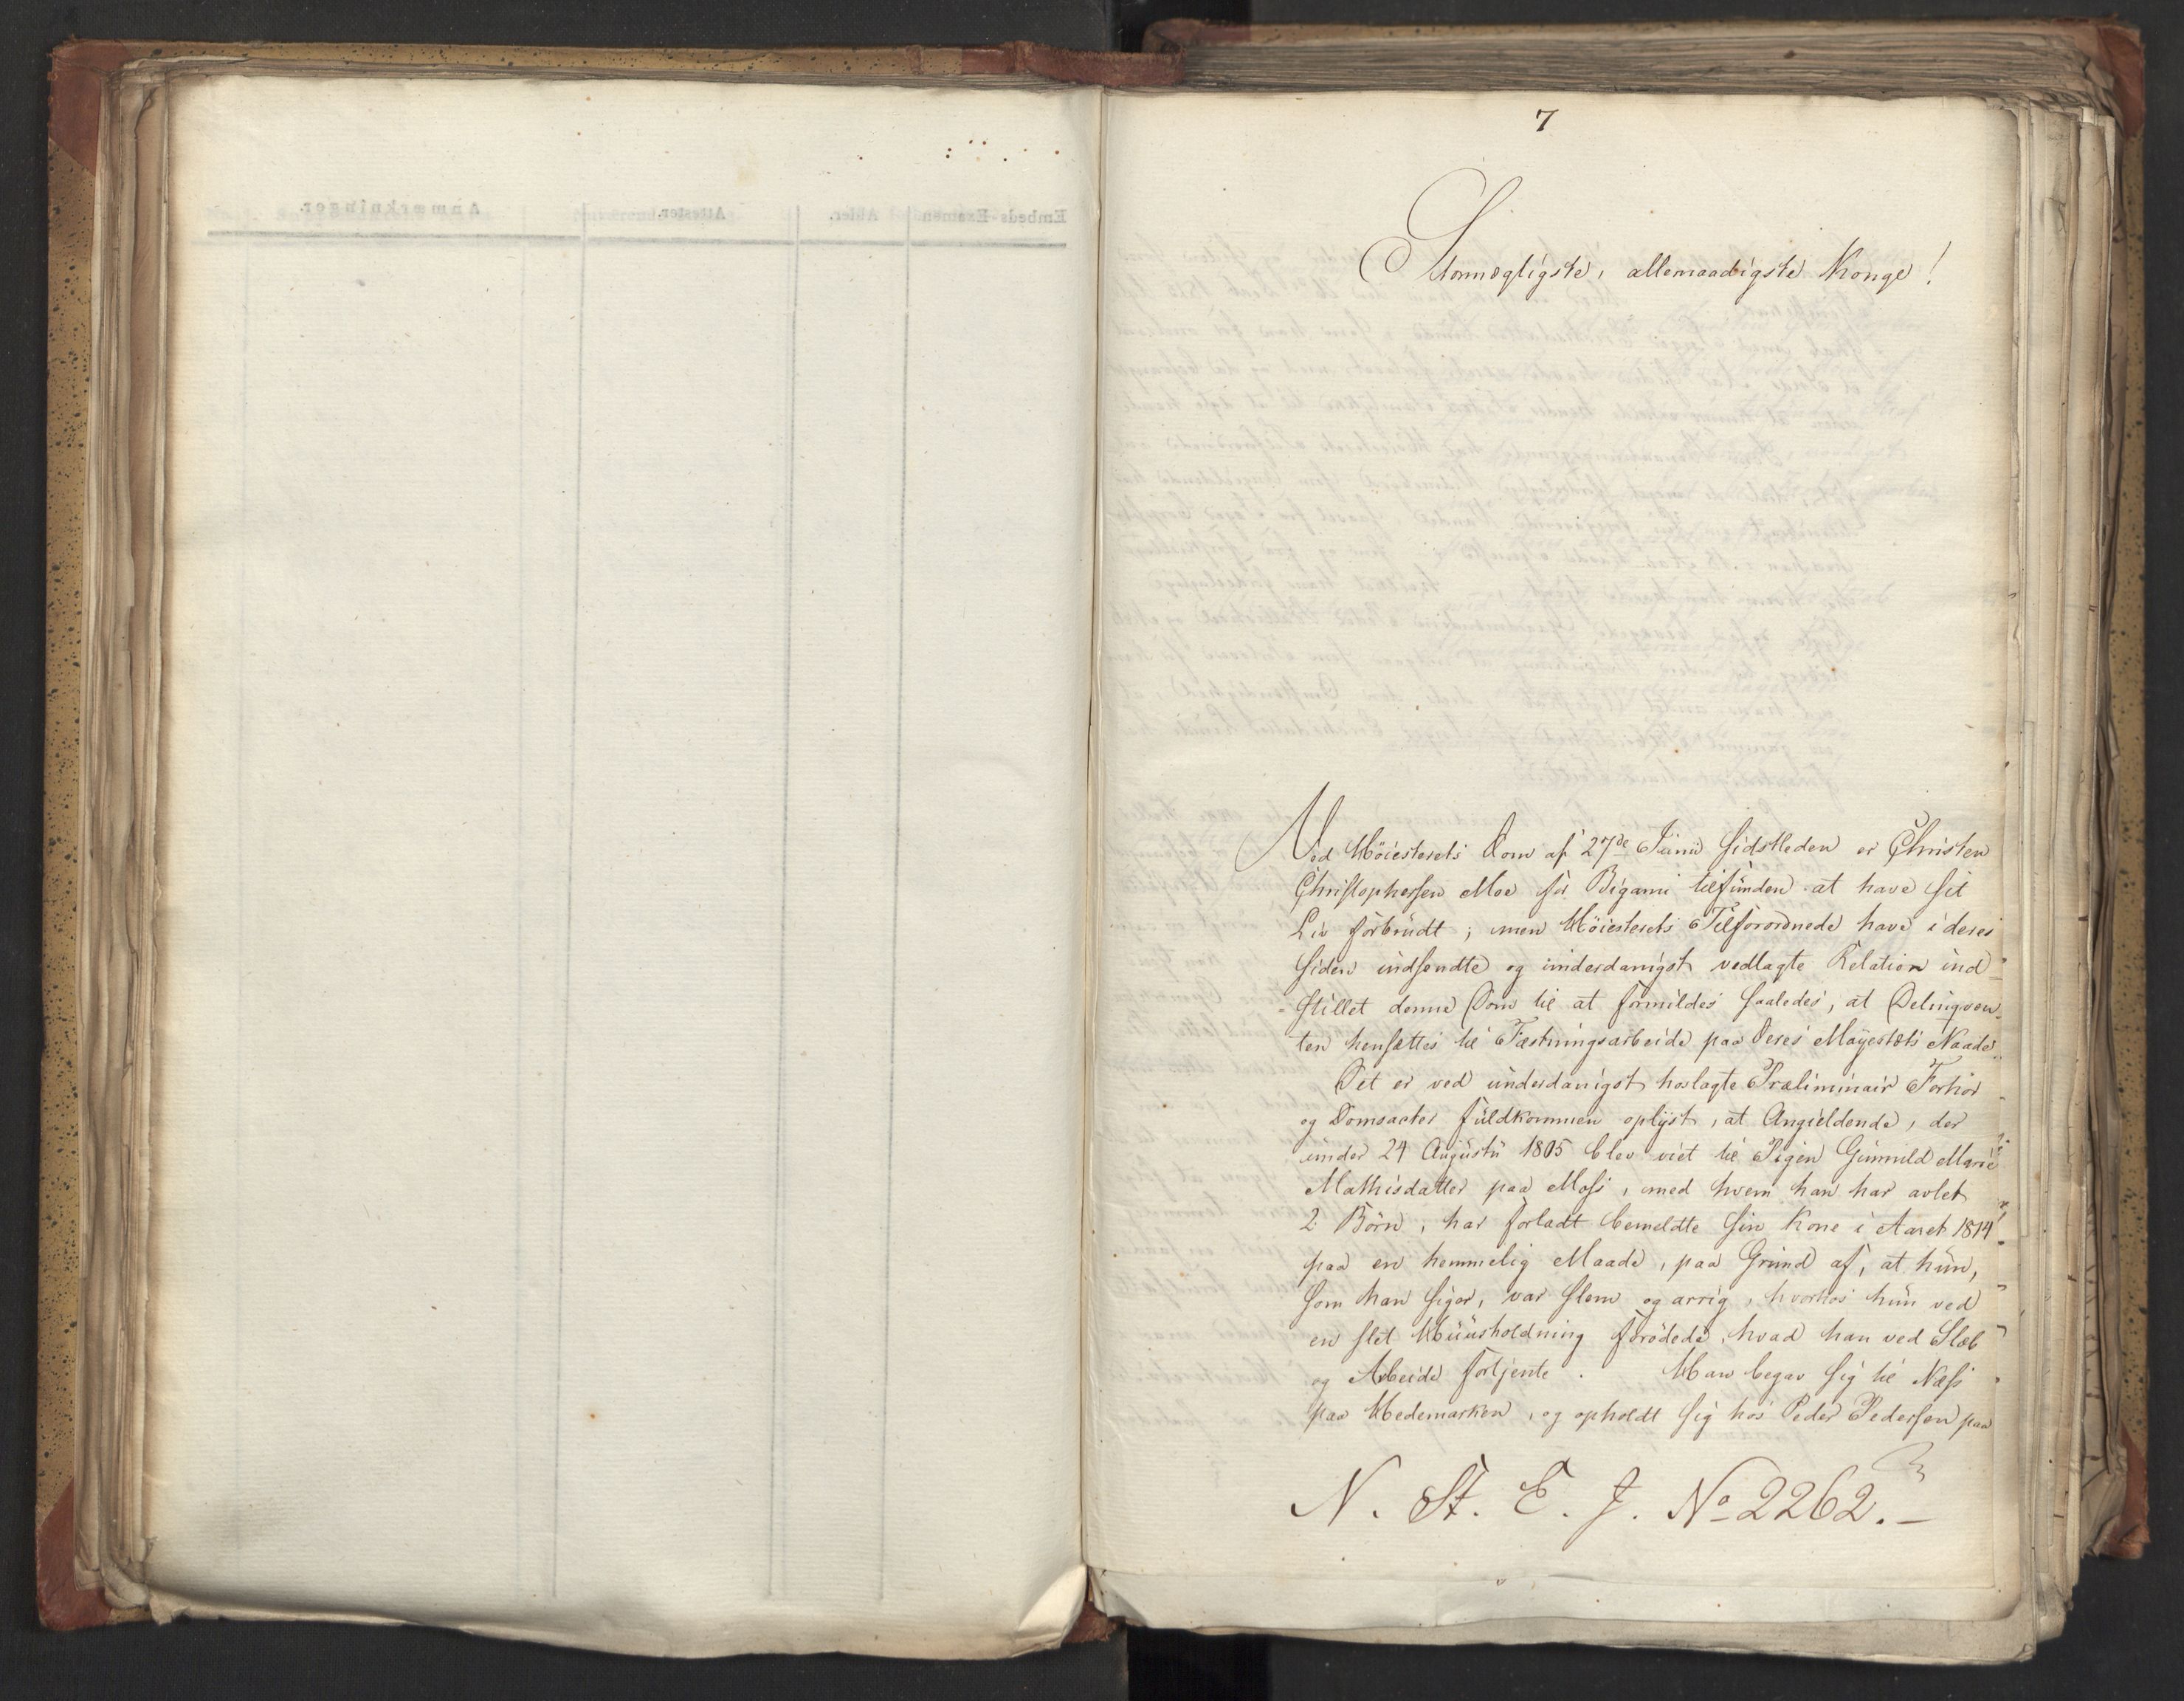 7
Stormægtigste, allernaadigste Konge!
Ved Høiesterets Dom af 27de Junii sidstleden er Christen
Christophersen Moe for Bigami tilfunden at have sit
Liv forbrudt; men Høiesterets Tilforordnede have i deres
siden indsendte og underdanigst vedlagte Relation ind-
stillet denne Dom til at formildes saaledes, at Delinqven-
ten hensættes til Fæstningsarbeide paa Deres Majestæts Naade.
Det er ved underdanigst hoslagte Præliminair Forhør
og Domsacter fuldkommen oplyst, at Angieldende, der
under 24 Augustii 1805 blev viet til Pigen Gunnild Marie
Mathisdatter paa Moss, med hvem han har avlet
2 Børn, har forladt bemeldte sin Kone i Aaret 1814
paa en hemmelig Maade, paa Grund af, at hun,
som han siger, var slem og arrig, hvorhos hun ved
en slet Huusholdning forødede, hvad han ved Slæb
og Arbeide fortjente. Han begav sig til Næss
paa Hedemarken, og opholdt sig hos Peder Pedersen paa
N. St. E. J. No 2262.-
Embeds-Examen
Alder.
Attester.
Anmærkninger.